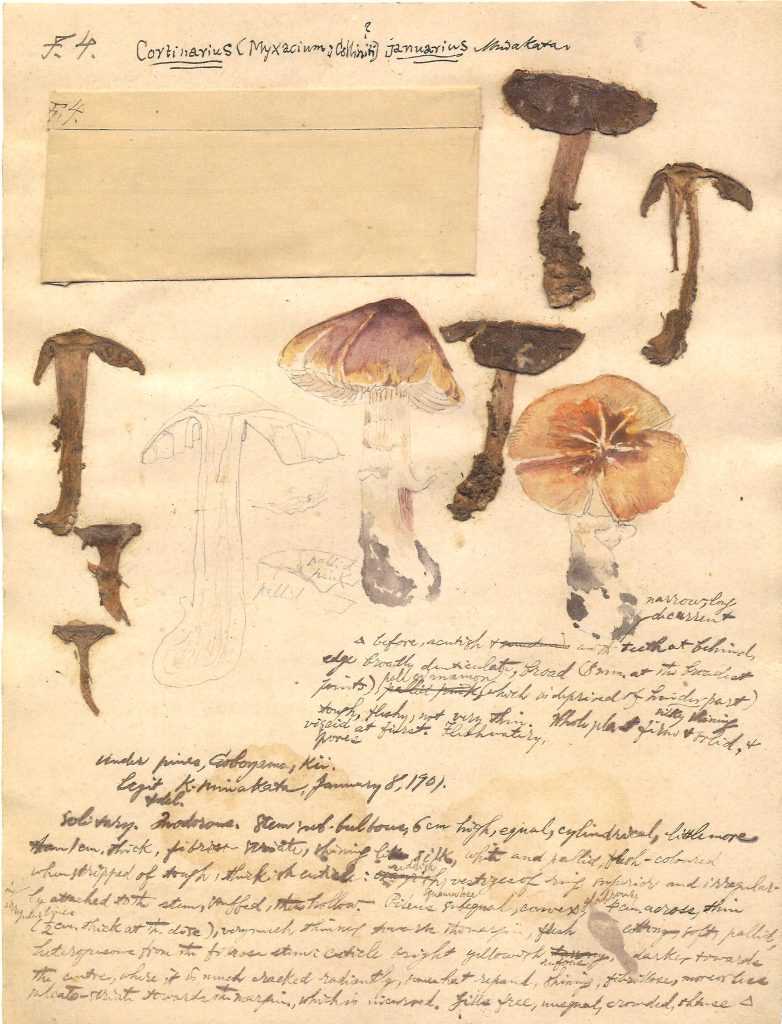 F. 4.
Cortinarius (Myxacium; Colliniti?) januarius Minakata
F. 4.
pallid
pallid
narrowly
decurrent
Δ before, acutish & with teeth at behind,
edge broadly denticulate, broad (8mm. at the broadest
points) pale cinnamon which is deprived of
tough, fleshy, not very thin. Whole plant firm & solid, &
silky shining
viscid at first. Flesh watery,
spores
Under pines, Goboyama, Kii.
Legit K. Minakata, January 8, 1901.
& del.
Solitary. Inodorous. Stem sub-bulbous, 6 cm high, equal, cylindrical, little more
than 1 cm. thick, fibrous striate, shining like silk, white and pallid, flesh-coloured
when stripped of tough, thickish cuticle: reddish vestiges of ring superior and irregular-
ly attached to the stem, stuffed, then hollow. Pileus subequal, convex, 4 cm. across, thin
(½ cm. thick at the disc), very much thinning towards the margin, flesh cottony, soft, pallid,
from the stem; cuticle bright yellowish darker towards
the centre, where it is much cracked radiantly, somewhat repand, shining, fibrillose, more or less
plicato-striate towards the margin, which is incurved. Gills free, unequal, crowded, obtuse Δ